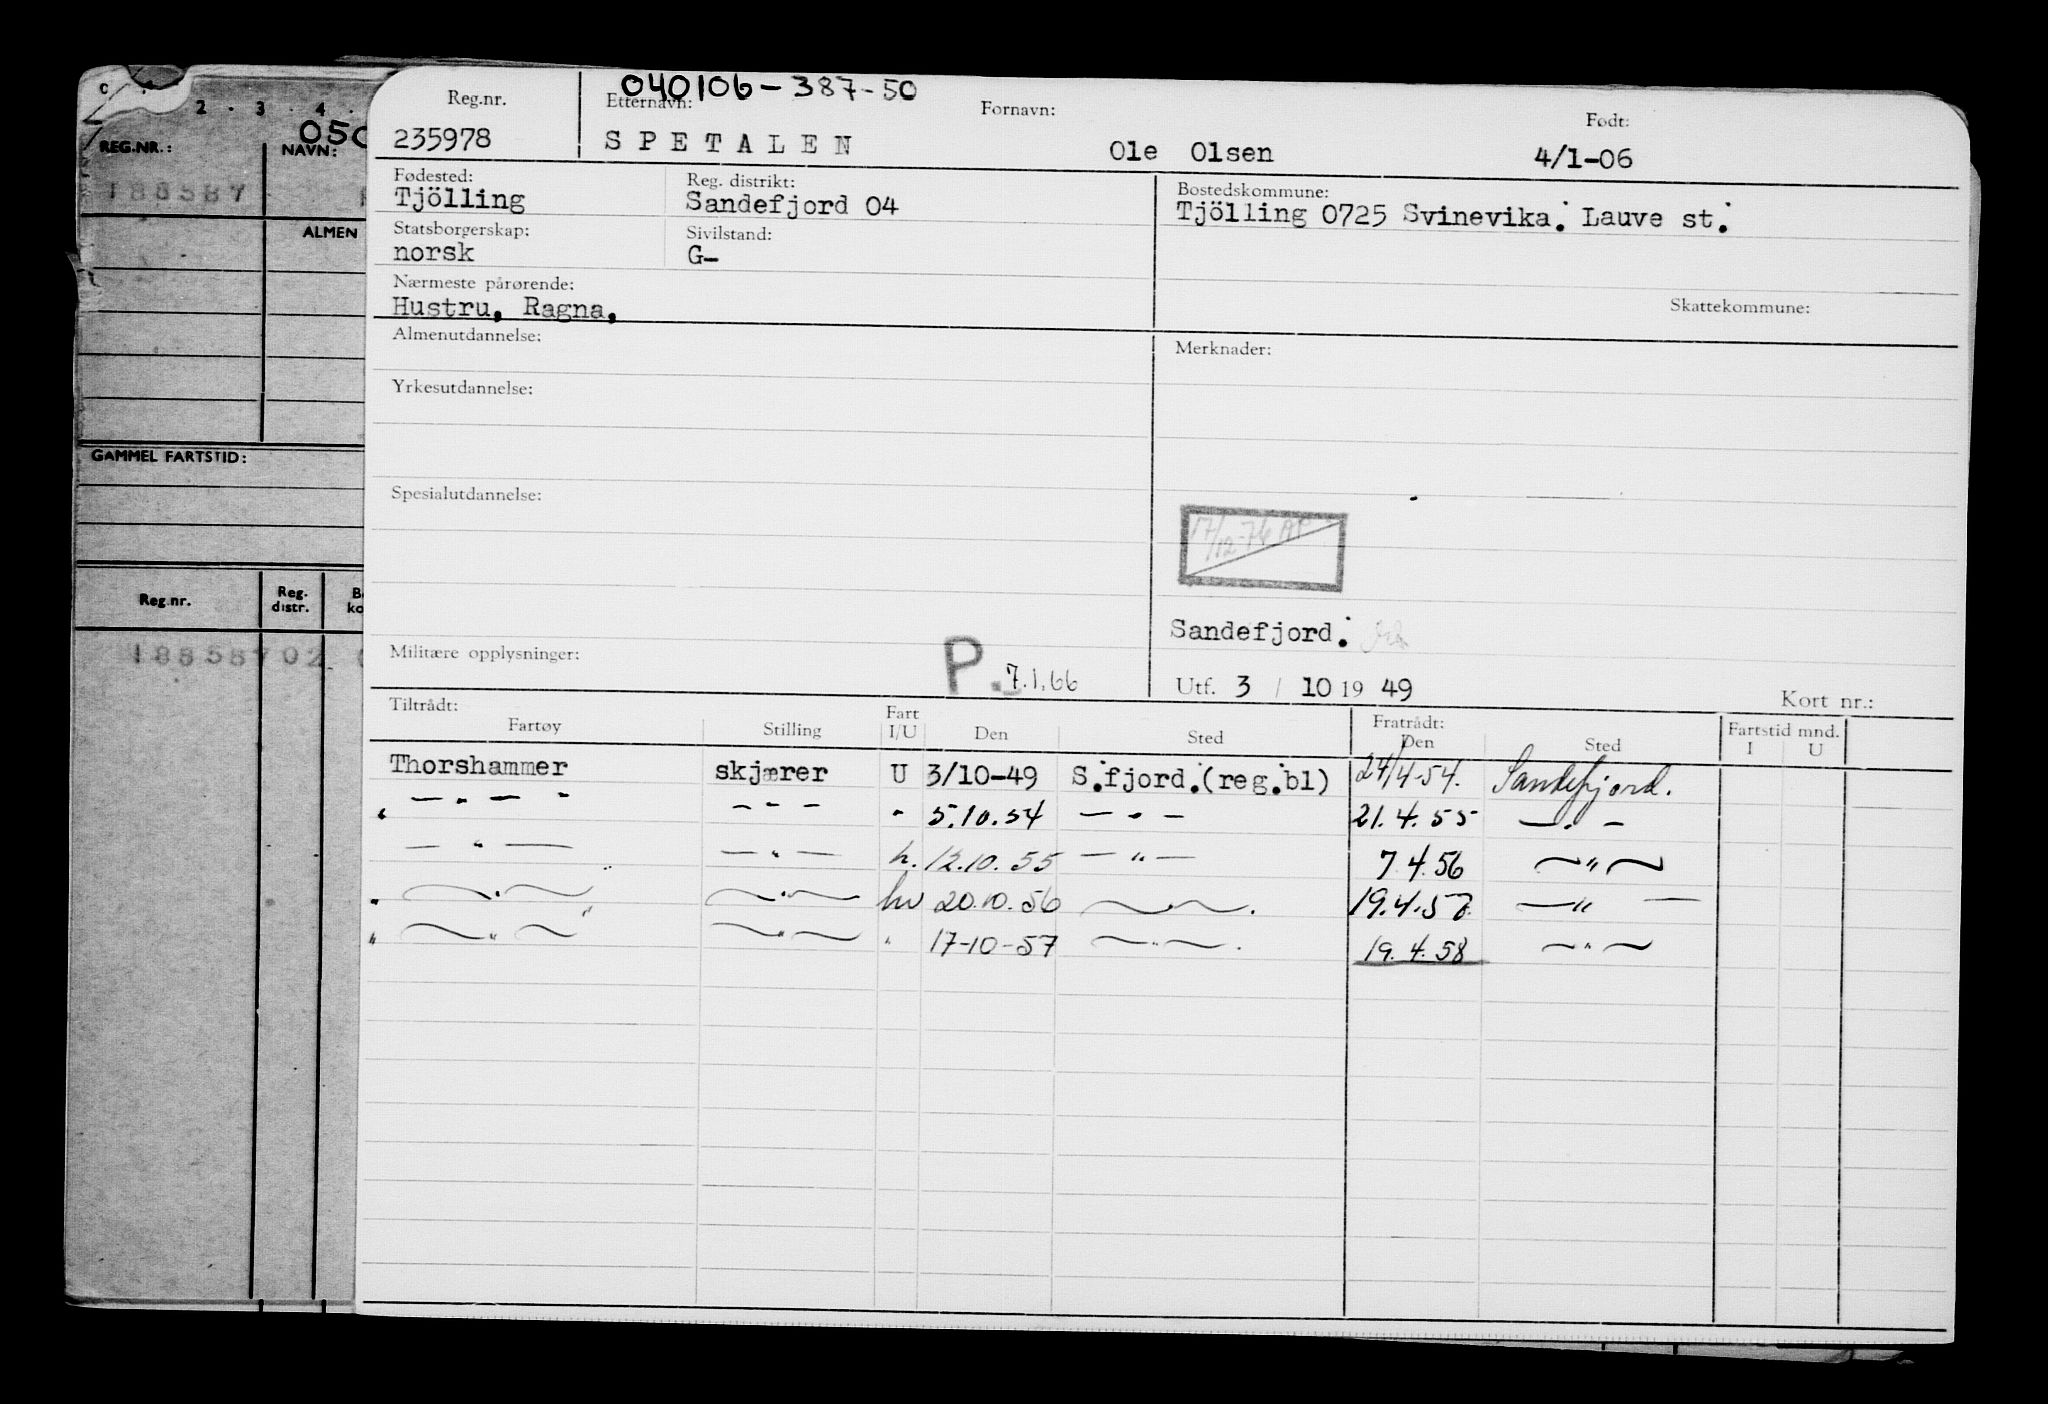 c
2 . 3 . 4 .
050
REG.NR.:
NAVN:
188587
ALMEN
GAMMEL FARTSTID:
Reg.nr.
Reg. distr.
188587 02
040106-387-50
Reg.nr.
Etternavn:
Fornavn:
Født:
235978
SPETALEN
Ole Olsen
4/1-06
Fødested:
Reg. distrikt:
Bostedskommune:
Tjölling
Sandefjord 04
Tjölling 0725 Svinevika. Lauve st.
Statsborgerskap:
Sivilstand:
norsk
G-
Nærmeste pårørende:
Skattekommune:
Hustru, Ragna.
Almenutdannelse:
Merknader:
Yrkesutdannelse:
Spesialutdannelse:
17/12-76
Sandefjord.
Militære opplysninger:
P. 7.1.66
Utf. 3 / 10 19 49
Kort nr.:
Tiltrådt:
Fratrådt:
Fartstid mnd.
Fartøy
Stilling
Fart I/U
Den
Sted
Den
Sted
I
U
Thorshammer skjærer U 3/10-49 S.fjord.(reg.bl) 24/4-54. Sandefjord.
" — " — — " — " 5.10.54 — " — 21.4.55 — " —
— " — — " — h. 12.10.55 — " — 7.4.56 — " —
" — " — — " — hv 20.10.56 — " — 19.4.57 — " —
" — " — — " — " 17-10-57 — " — 19.4.58 — " —